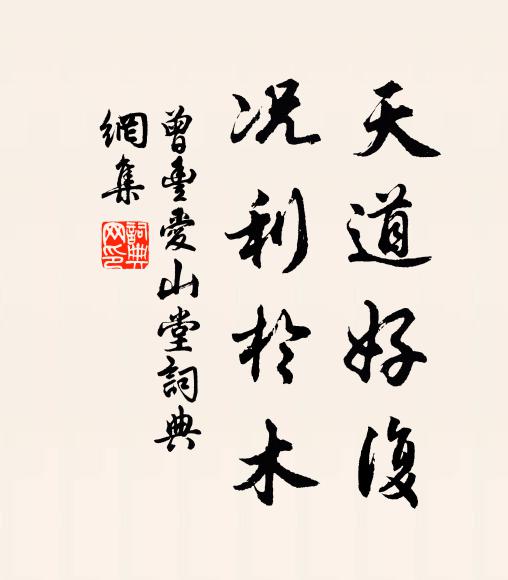 天道好復
况利於木
曾豊愛山堂詞典
網集
詞典
网印